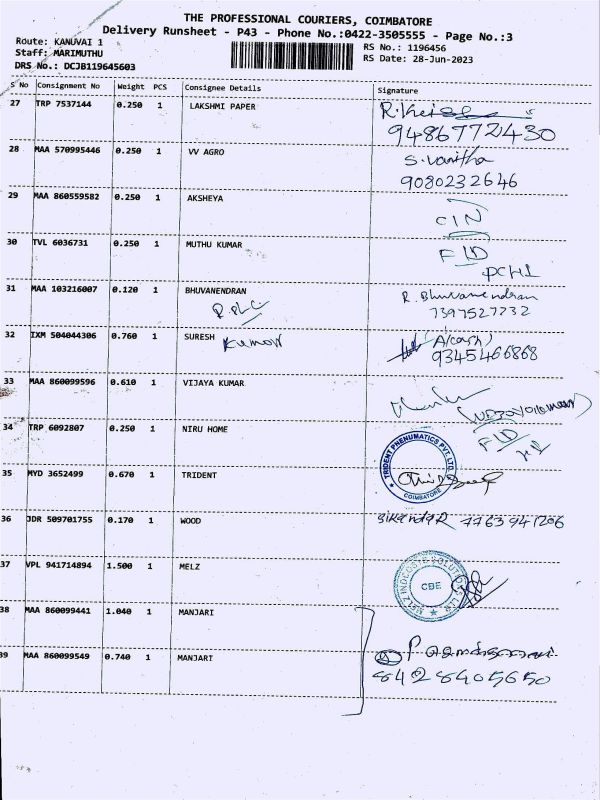 THE PROFESSIONAL COURIERS, COIMBATORE
Delivery Runsheet - P43 - Phone No.:0422-3505555 - Page No.:3
Route: KANUVAI 1
Staff: MARIMUTHU
DRS No.: DCJB119645603
RS No.: 1196456
RS Date: 28-Jun-2023
S No Consignment No Weight PCS Consignee Details Signature
27 TRP 7537144 0.250 1 LAKSHMI PAPER
9486772430
28 MAA 570995446 0.250 1 VV AGRO S.Vanitha
9080232646
29 MAA 860559582 0.250 1 AKSHEYA
CIN
30 TVL 6036731 0.250 1 MUTHU KUMAR
31 MAA 103216007 0.120 1 BHUVANENDRAN R. Bhuvanendran
7397527732
32 IXM 504044306 0.760 1 SURESH Kumar
9345466868
33 MAA 860099596 0.610 1 VIJAYA KUMAR
34 TRP 6092807 0.250 1 NIRU HOME
35 MYD 3652499 0.670 1 TRIDENT
TRIDENT PNEUMATICS PVT. LTD.
COIMBATORE
36 JDR 509701755 0.170 1 WOOD 7763941206
37 VPL 941714894 1.500 1 MELZ
CBE
38 MAA 860099441 1.040 1 MANJARI
39 MAA 860099549 0.740 1 MANJARI
8428405650